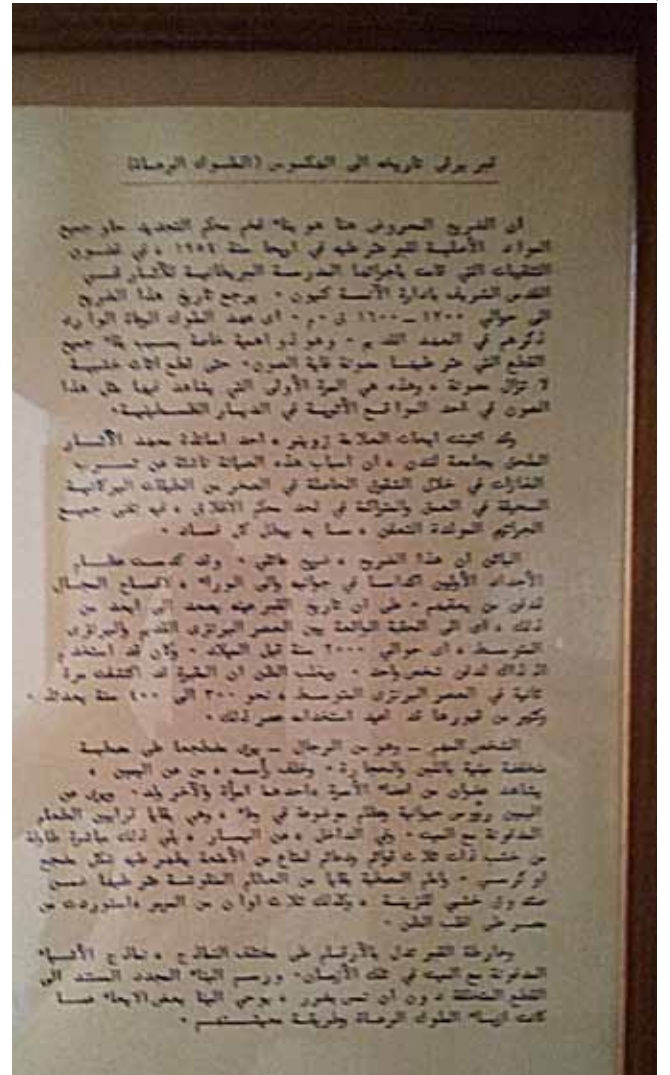 قبر يرقى تاريخه الى الهكسوس (الملوك الرعاة)
ان الضريح المعروض هنا هو بناء محكم التجديد حاو جميع
المواد الأصلية للقبر عثر عليه في اريحا سنة ١٩٥٤ ، في غضون
التنقيبات التي قامت باجرائها المدرسة البريطانية للآثار في
القدس الشريف بادارة الآنسة كنيون ٠ يرجع تاريخ هذا الضريح
الى حوالي ١٧٠٠ ــ ١٦٠٠ ق ٠ م ٠ اى عهد الملوك الرعاة الوارد
ذكرهم في العهد القديم ٠ وهو ذو اهمية خاصة بسبب بقاء جميع
القطع التي عثر عليها مصونة غاية الصون ٠ حتى قطع اثاث خشبية
لا تزال مصونة ، وهذه هي المرة الأولى التي يشاهد فيها مثل هذا
الصون في احد المواقع الأثرية في الديار الفلسطينية ٠
وقد اثبتت ابحاث العلامة زوينر ، احد اساتذة معهد الآثار
الملحق بجامعة لندن ، ان اسباب هذه الصيانة ناشئة عن تسرب
الغازات في خلال الشقوق الحاصلة في الصخر من الطبقات البركانية
السحيقة في العمق والمتراكمة في لحد محكم الاغلاق ، فيه تفنى جميع
الجراثيم المولدة التعفن ، مما به يبطل كل فساد ٠
البائن ان هذا الضريح ، ضريح عائلي ٠ وقد كدست عظام
الأجداد الأولين اكداسا في جوانبه والى الوراء ، لافساح المجال
لدفن من يعقبهم ٠ على ان تاريخ القبر عينه يصعد الى ابعد من
ذلك ، اى الى الحقبة الواقعة بين العصر البرنزى القديم والبرنزى
المتوسط ، اى حوالي ٢٠٠٠ سنة قبل الميلاد ٠ وكان قد استخدم
اذ ذاك لدفن شخص واحد ٠ ويغلب الظن ان المقبرة قد اكتشفت مرة
ثانية في العصر البرنزى المتوسط ، نحو ٣٠٠ الى ٤٠٠ سنة بعدئذ ٠
وكثير من قبورها قد اعيد استخدامه عصر ذلك ٠
الشخص المهم ــ وهو من الرجال ــ يرى مضطجعا على مصطبة
منخفضة مبنية باللبن والحجارة ٠ وخلف رأسه ، من عن اليمين ،
يشاهد عضوان من اعضاء الأسرة ، احدهما امرأة والآخر ولد ٠ ويرى عن
اليمين رؤوس حيوانية وعظام موضوعة في وعاء ، وهي بقايا قرابين الطعام
المدفونة مع الميت ٠ وفي الداخل ، عن اليسار ، يلي ذلك مباشرة طاولة
من خشب ذات ثلاث قوائم وذخائر لمتاع من الأطعمة يظهر عليه شكل مضجع
او كرسي ٠ وامام المصطبة بقايا من العظام المنقوشة عثر عليها ضمن
صندوق خشبي للزينة ، وكذلك ثلاث اوان من المرمر ، استوردت من
مصر على اغلب الظن ٠
وخارطة القبر تدل بالأرقام على مختلف النماذج ، نماذج الأشياء
المدفونة مع الميت في تلك الأزمان ٠ ورسم البناء المجدد المستند الى
القطع المتخلفة دون ان تمس بضرر ، يوحي الينا بعض الايحاء عما
كانت ازياء الملوك الرعاة وطريقة معيشتهم ٠